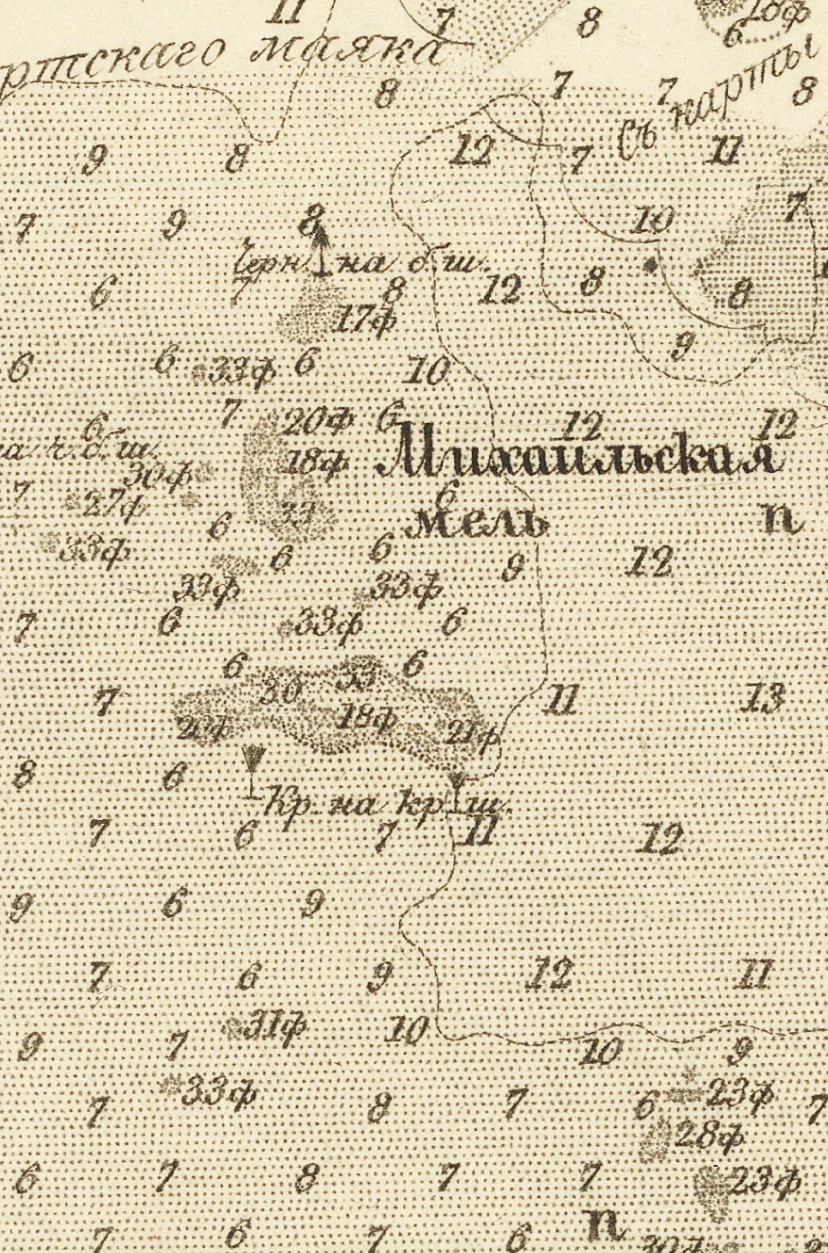 11 7 8 18ф
6
ртскаго маяка
8 7 7 8
Съ карты
9 8 12 7 11
7 9 8 10 7
Черн на б.ш.
6 7 8 12 8 8
17ф
9
6 6 33ф 6 10
7 20ф 6 12 12
6
на ч.б.ш. 18ф Михаильская
30ф
7 27ф 33 6
6 мель п
33ф 6 6 9 12
33ф 33ф
7 6 33ф 6
6 33 6
7 30 11 13
20ф 18ф 21ф
8 6
Кр на кр ш.
7 6 7 11 12
9 6 9
7 6 9 12 11
31ф 10
9 7 10 9
33ф 23ф
7 8 7 6 7
28ф
6 7 8 7 7 23ф
п
7 6 7 6 30ф